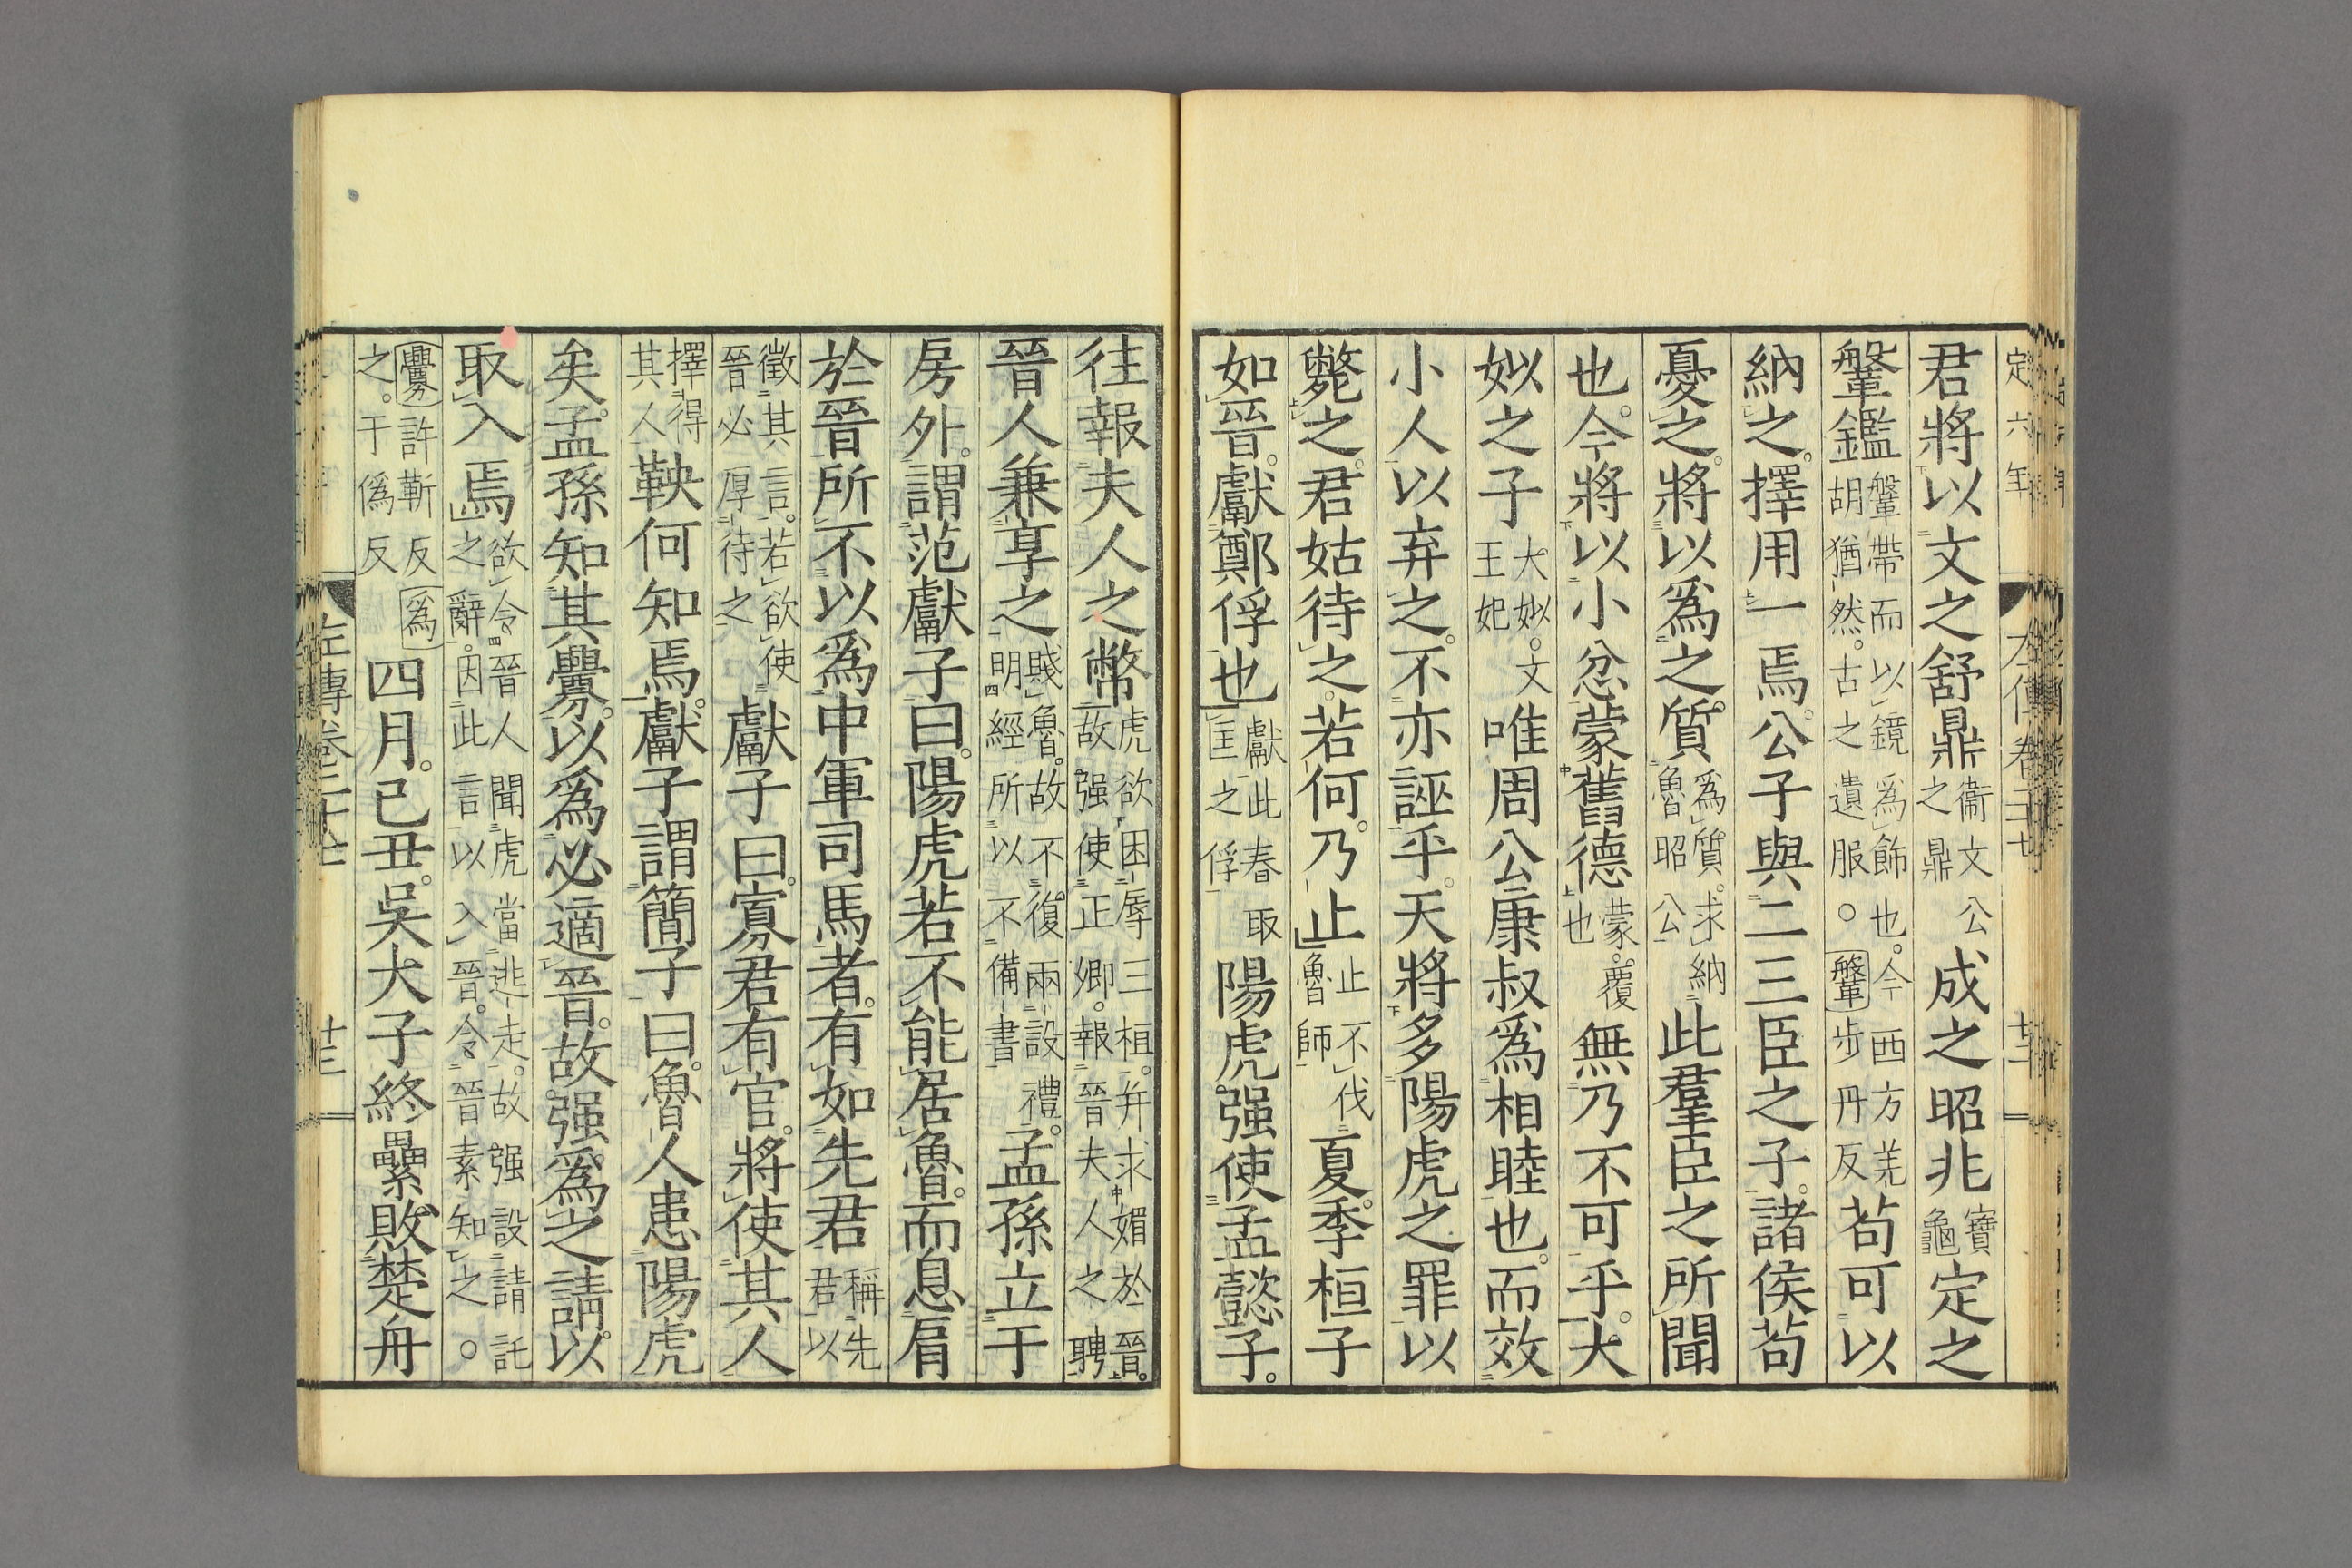 定六年 左傳卷二十七 十二
君將以文之舒鼎衞文公之鼎成之昭兆寶龜定之
鞶鑑鞶帶而以鏡爲飾也。今西方羌胡猶然。古之遺服。○鞶步丹反苟可以
納之。擇用一焉。公子與二三臣之子。諸侯苟
憂之。將以爲之質。爲質。求納魯昭公此羣臣之所聞
也。今將以小忿蒙舊德蒙。覆也無乃不可乎。大
姒之子大姒。文王妃唯周公康叔爲相睦也。而效
小人以弃之。不亦誣乎。天將多陽虎之罪以
斃之。君姑待之。若何。乃止止不伐魯師夏。季桓子
如晉。獻鄭俘也獻此春取匡之俘陽虎。强使孟懿子。
往報夫人之幣虎欲困辱三桓。幷求媚於晉。故强使正卿。報晉夫人之聘
晉人兼享之賤魯。故不復兩設禮。明經所以不備書孟孫立于
房外。謂范獻子曰。陽虎若不能居魯。而息肩
於晉。所不以爲中軍司馬者。有如先君稱先君以
徵其言。若欲使晉必厚待之獻子曰。寡君有官。將使其人
擇得其人鞅何知焉。獻子謂簡子曰。魯人患陽虎
矣。孟孫知其釁。以爲必適晉。故强爲之請。以
取入焉欲令晉人聞虎當逃走。故强設請託之辭。因此言以入晉。令晉素知之。○
釁許靳反爲之。于僞反四月。己丑。吳大子終纍敗楚舟
左傳卷二十七 十三